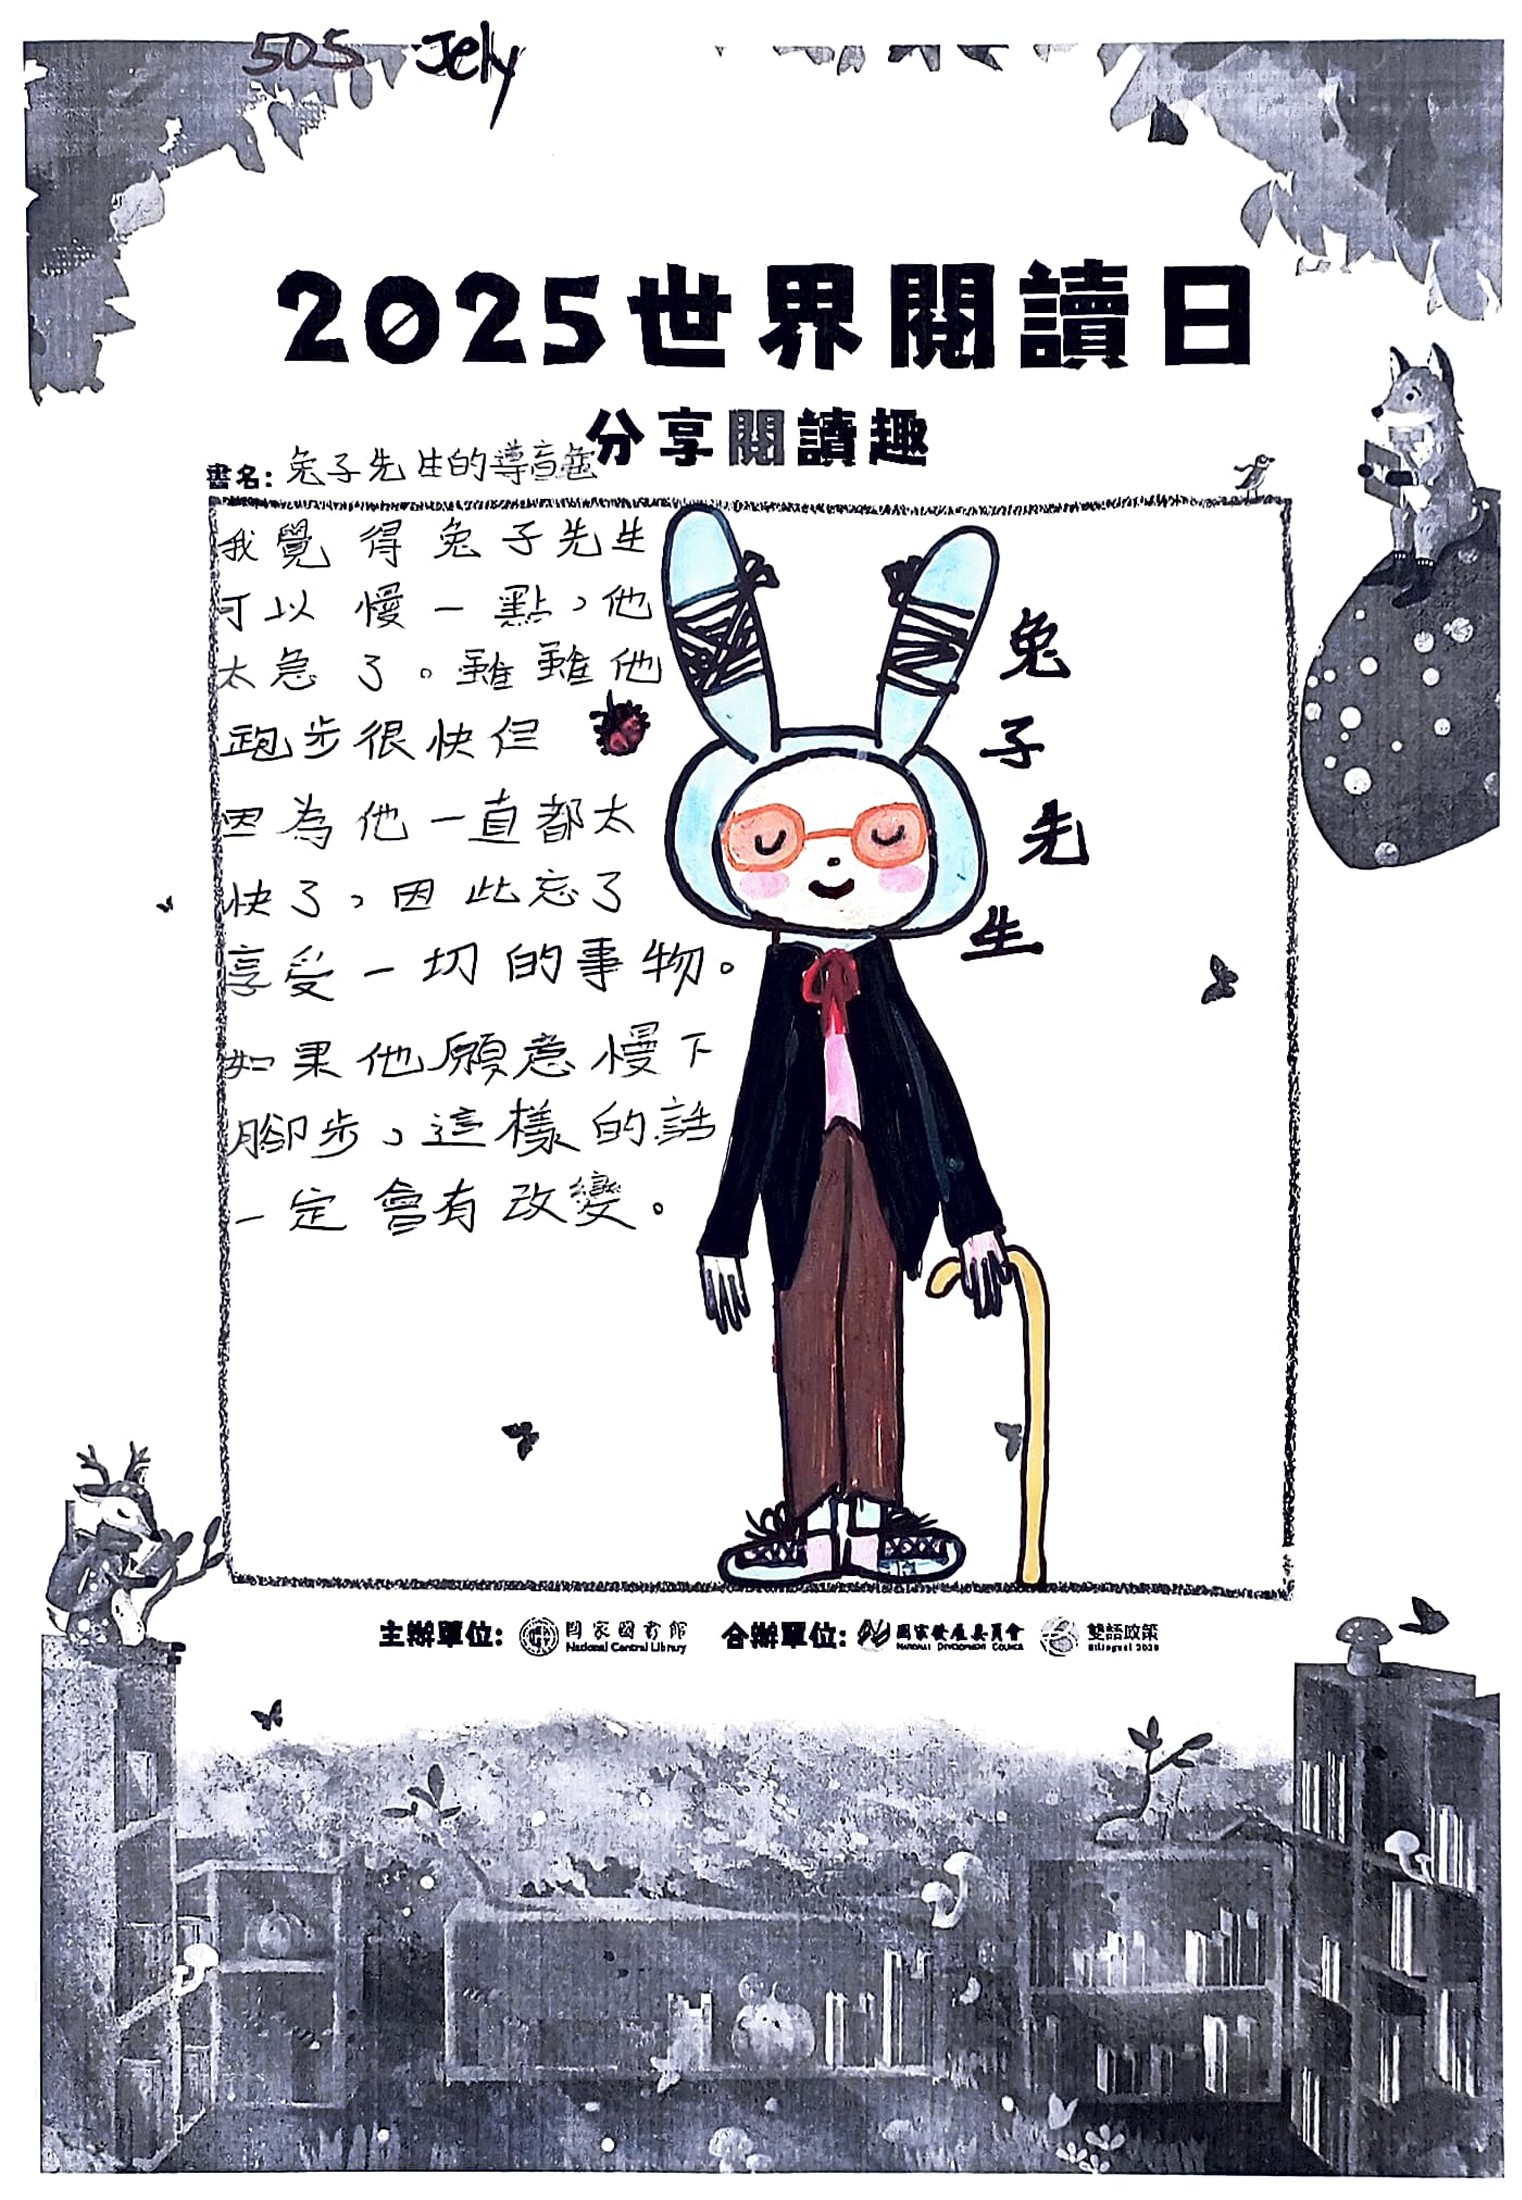 505 Jely
2025世界閱讀日
分享閱讀趣
書名: 兔子先生的導盲龜
我覺得兔子先生
可以慢一點，他
太急了。雖雖他
跑步很快但
因為他一直都太
快了，因此忘了
享受一切的事物。
如果他願意慢下
腳步，這樣的話
一定會有改變。
兔子先生
主辦單位: 國家圖書館 National Central Library 合辦單位: 國家發展委員會 National Development Council 雙語政策 Bilingual 2030